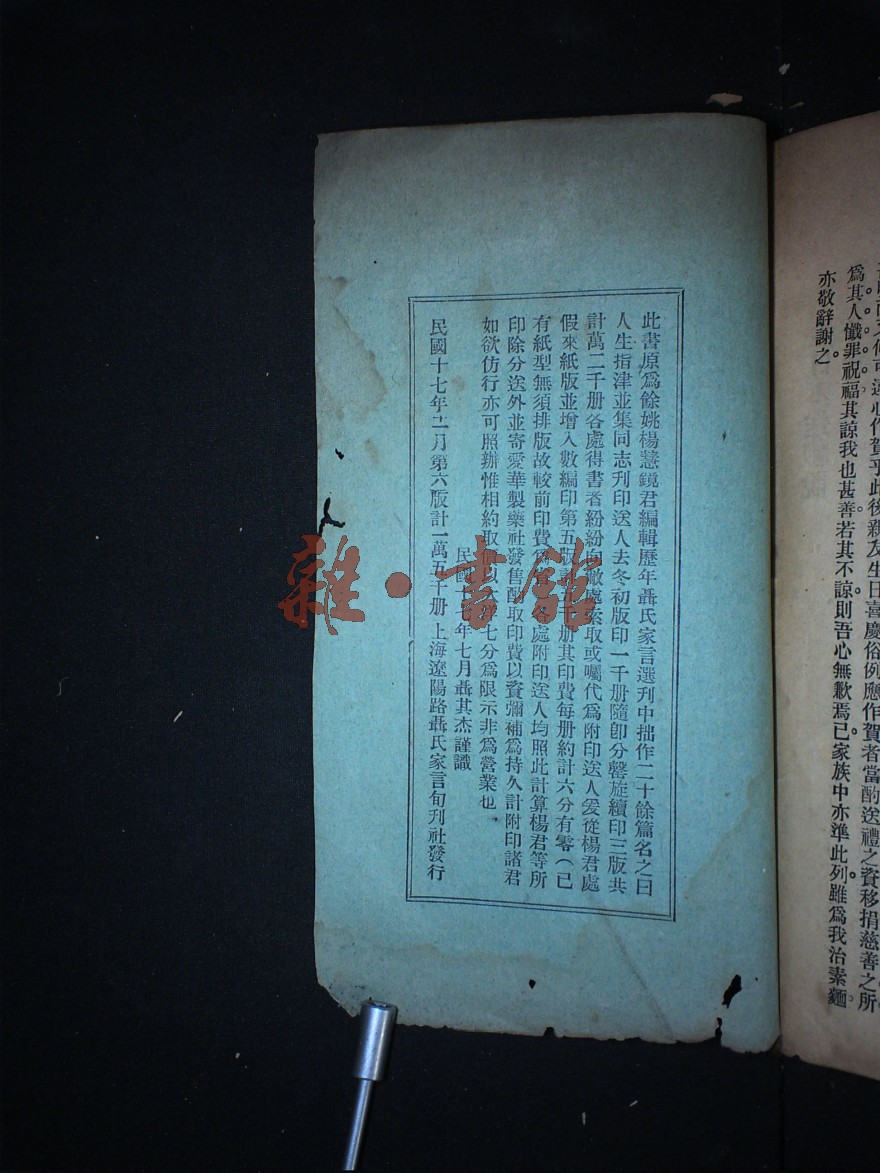 爲其人懺罪祝福其諒我也甚善若其不諒則吾心無歉焉已家族中亦準此列雖爲我治素麵
亦敬辭謝之
此書原爲餘姚楊慧鏡君編輯歷年聶氏家言選刊中拙作二十餘篇名之曰
人生指津並集同志刊印送人去冬初版印一千册隨卽分罄旋續印三版共
計萬二千册各處得書者紛紛向敝處索取或囑代爲附印送人爰從楊君處
假來紙版並增入數編印第五版計五千册其印費每册約計六分有零(已
有紙型無須排版故較前印費爲 各處附印送人均照此計算楊君等所
印除分送外並寄愛華製藥社發售酌取印費以資彌補爲持久計附印諸君
如欲仿行亦可照辦惟相約取 以 七分爲限示非爲營業也
民國十 年七月聶其杰謹識
民國十七年二月第六版計一萬五千册 上海遼陽路聶氏家言旬刊社發行
雜·書館